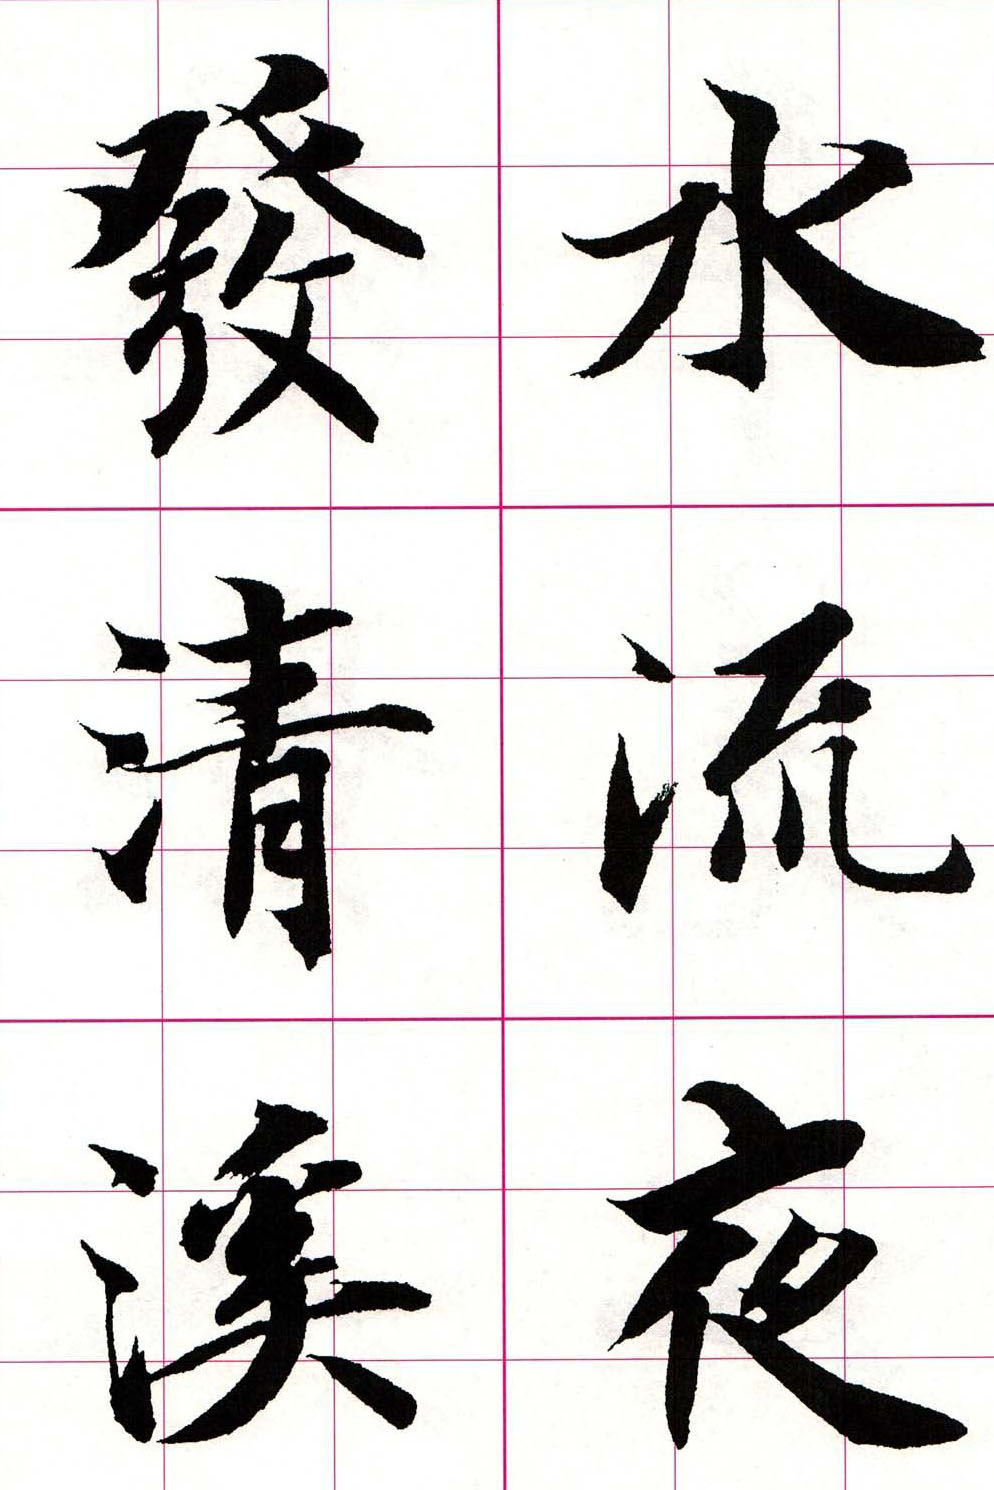 水流夜
發清溪